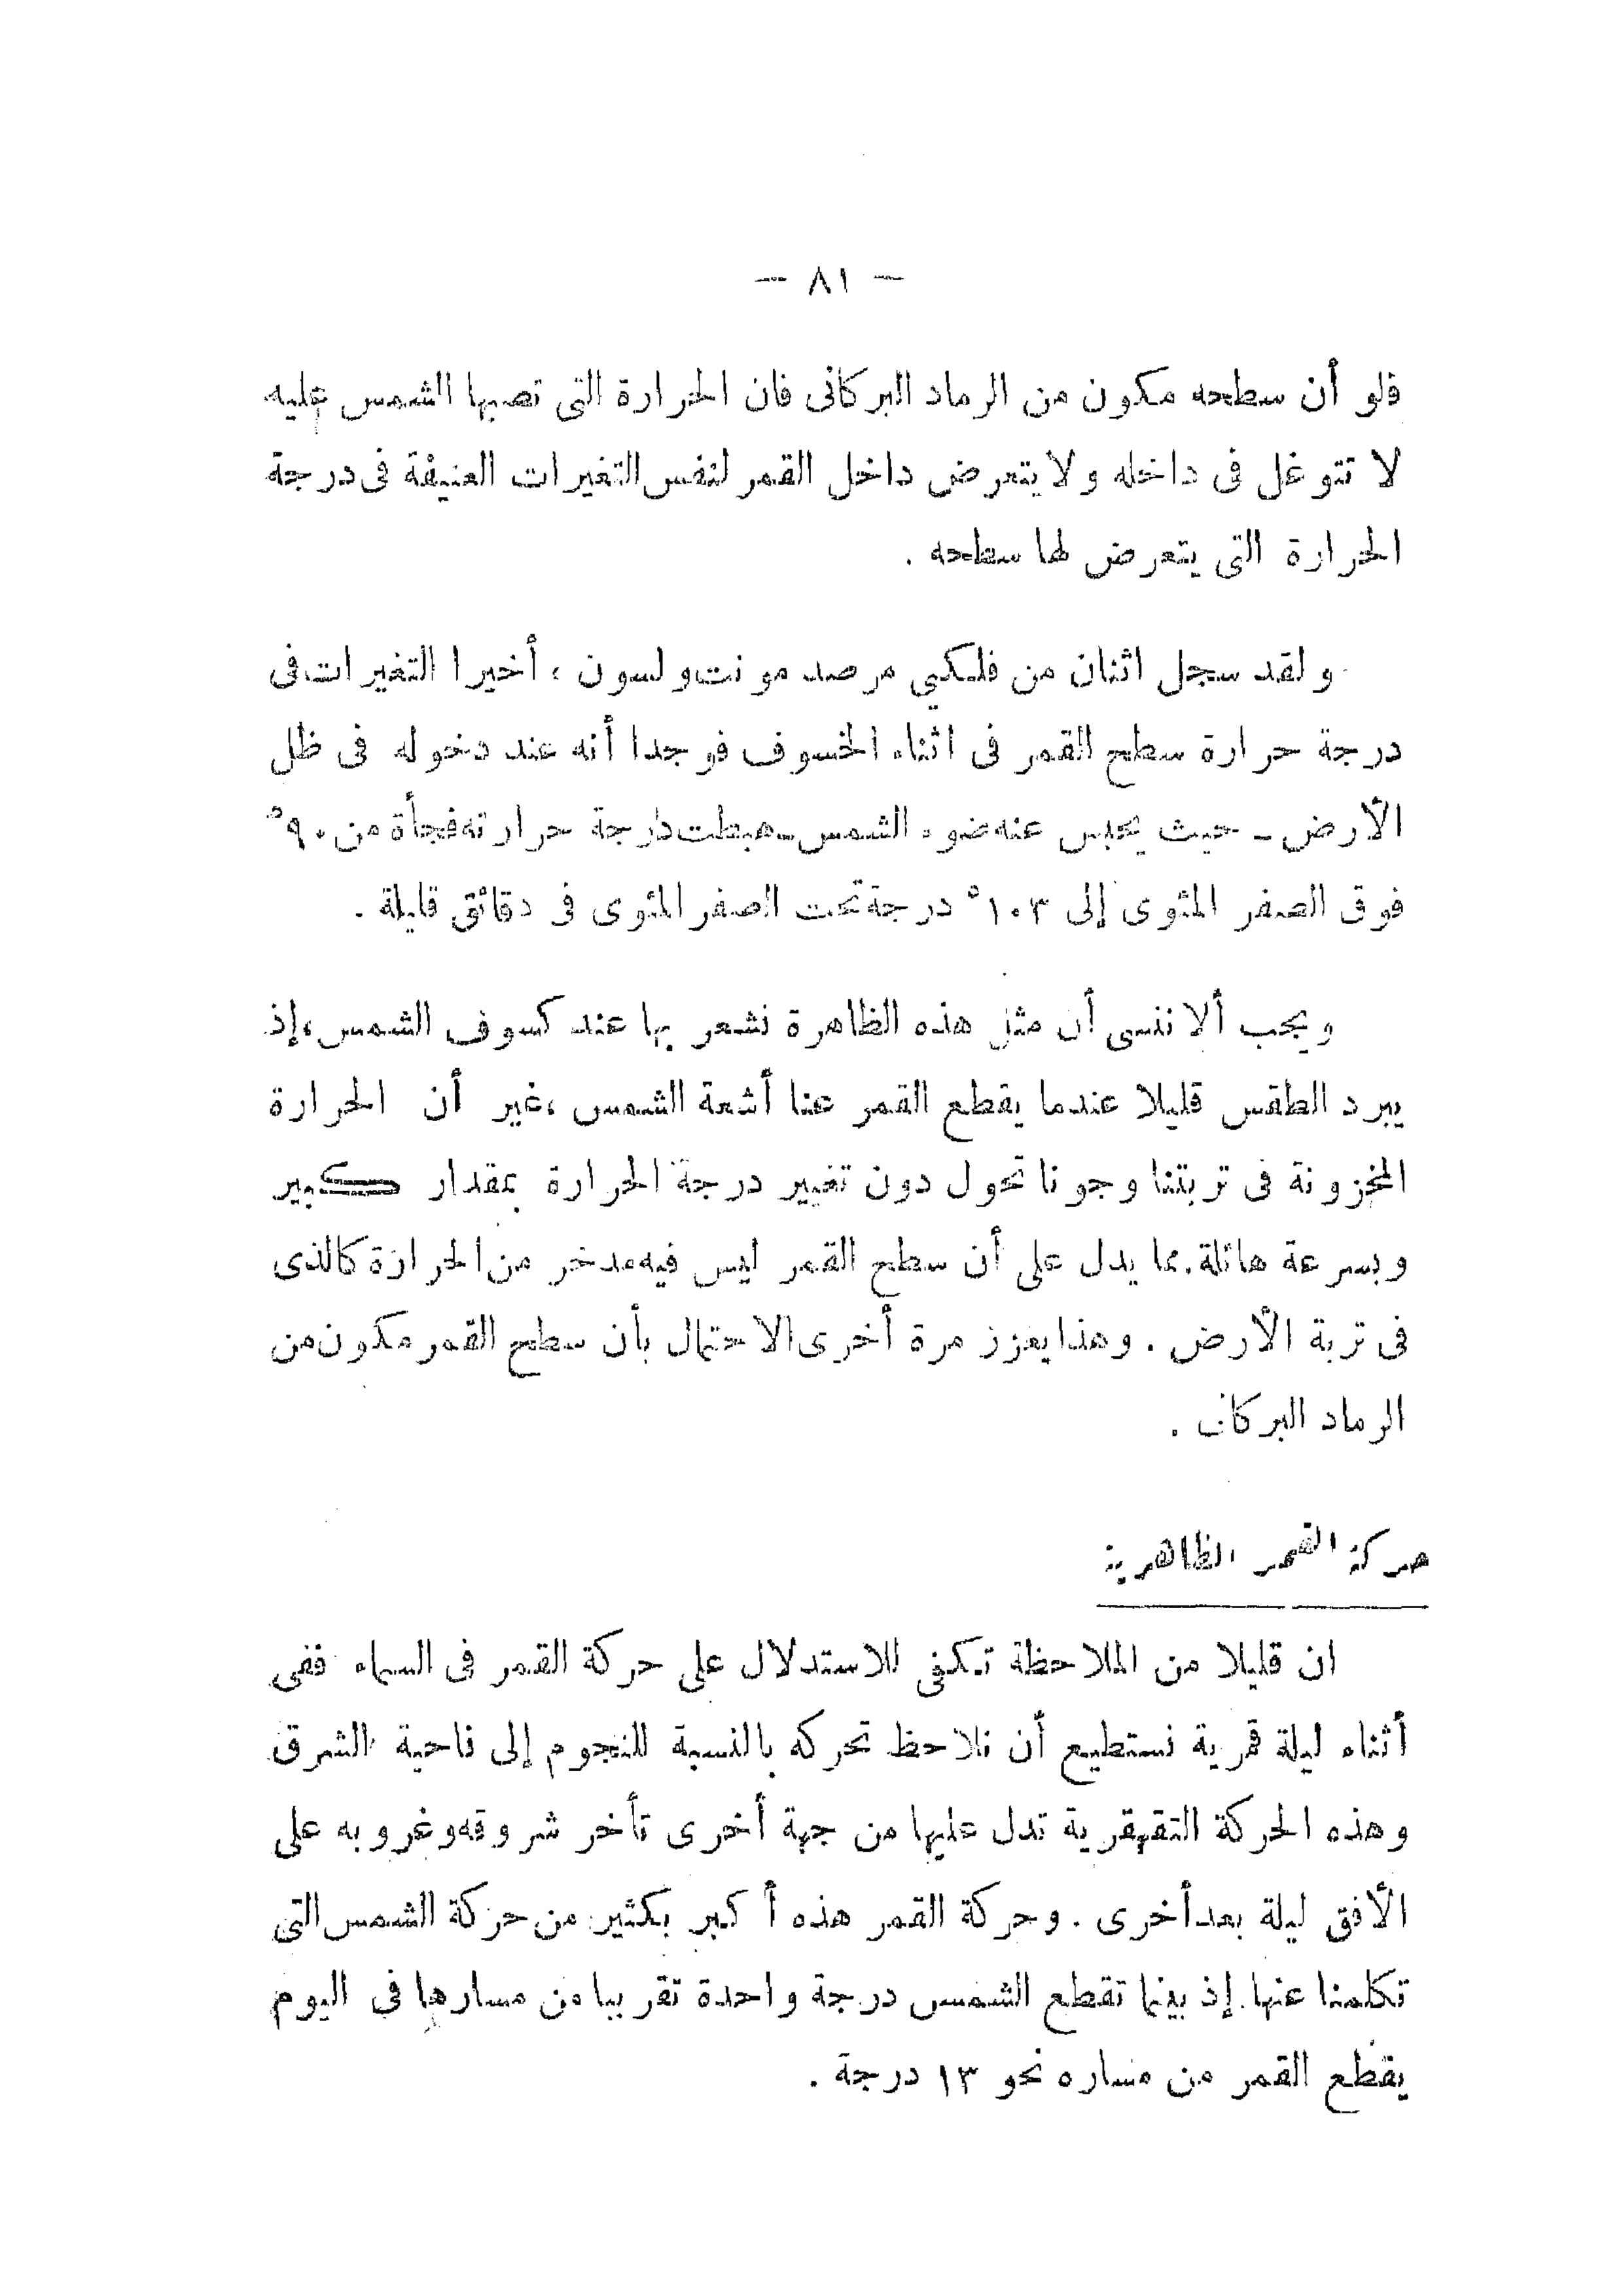 — ٨١ —
فلو أن سطحه مكون من الرماد البركانى فان الحرارة التى تصبها الشمس عليه
لا تتوغل فى داخله ولا يتعرض داخل القمر لنفس التغيرات العنيفة فى درجة
الحرارة التى يتعرض لها سطحه .
ولقد سجل اثنان من فلكي مرصد مونت ولسون ، أخيرا التغيرات فى
درجة حرارة سطح القمر فى اثناء الخسوف فوجدا أنه عند دخوله فى ظل
الأرض ـ حيث يحبس عنه ضوء الشمس ـ هبطت درجة حرارته فجأة من ٩٠°
فوق الصفر المئوى إلى ١٠٣° درجة تحت الصفر المئوى فى دقائق قليلة .
ويجب ألا ننسى أن مثل هذه الظاهرة نشعر بها عند كسوف الشمس ، إذ
يبرد الطقس قليلا عندما يقطع القمر عنا أشعة الشمس ، غير أن الحرارة
المخزونة فى تربتنا وجونا تحول دون تغيير درجة الحرارة بمقدار كبير
وبسرعة هائلة . مما يدل على أن سطح القمر ليس فيه مدخر من الحرارة كالذى
فى تربة الأرض . وهذا يعزز مرة أخرى الاحتمال بأن سطح القمر مكون من
الرماد البركانى .
حركة القمر الظاهرية
ان قليلا من الملاحظة تكفى للاستدلال على حركة القمر فى السماء ففى
أثناء ليلة قمرية نستطيع أن نلاحظ تحركه بالنسبة للنجوم إلى ناحية الشرق
وهذه الحركة التقهقرية تدل عليها من جهة أخرى تأخر شروقه وغروبه على
الأفق ليلة بعد أخرى . وحركة القمر هذه أكبر بكثير من حركة الشمس التى
تكلمنا عنها . إذ بينما تقطع الشمس درجة واحدة تقريبا من مسارها فى اليوم
يقطع القمر من مساره نحو ١٣ درجة .